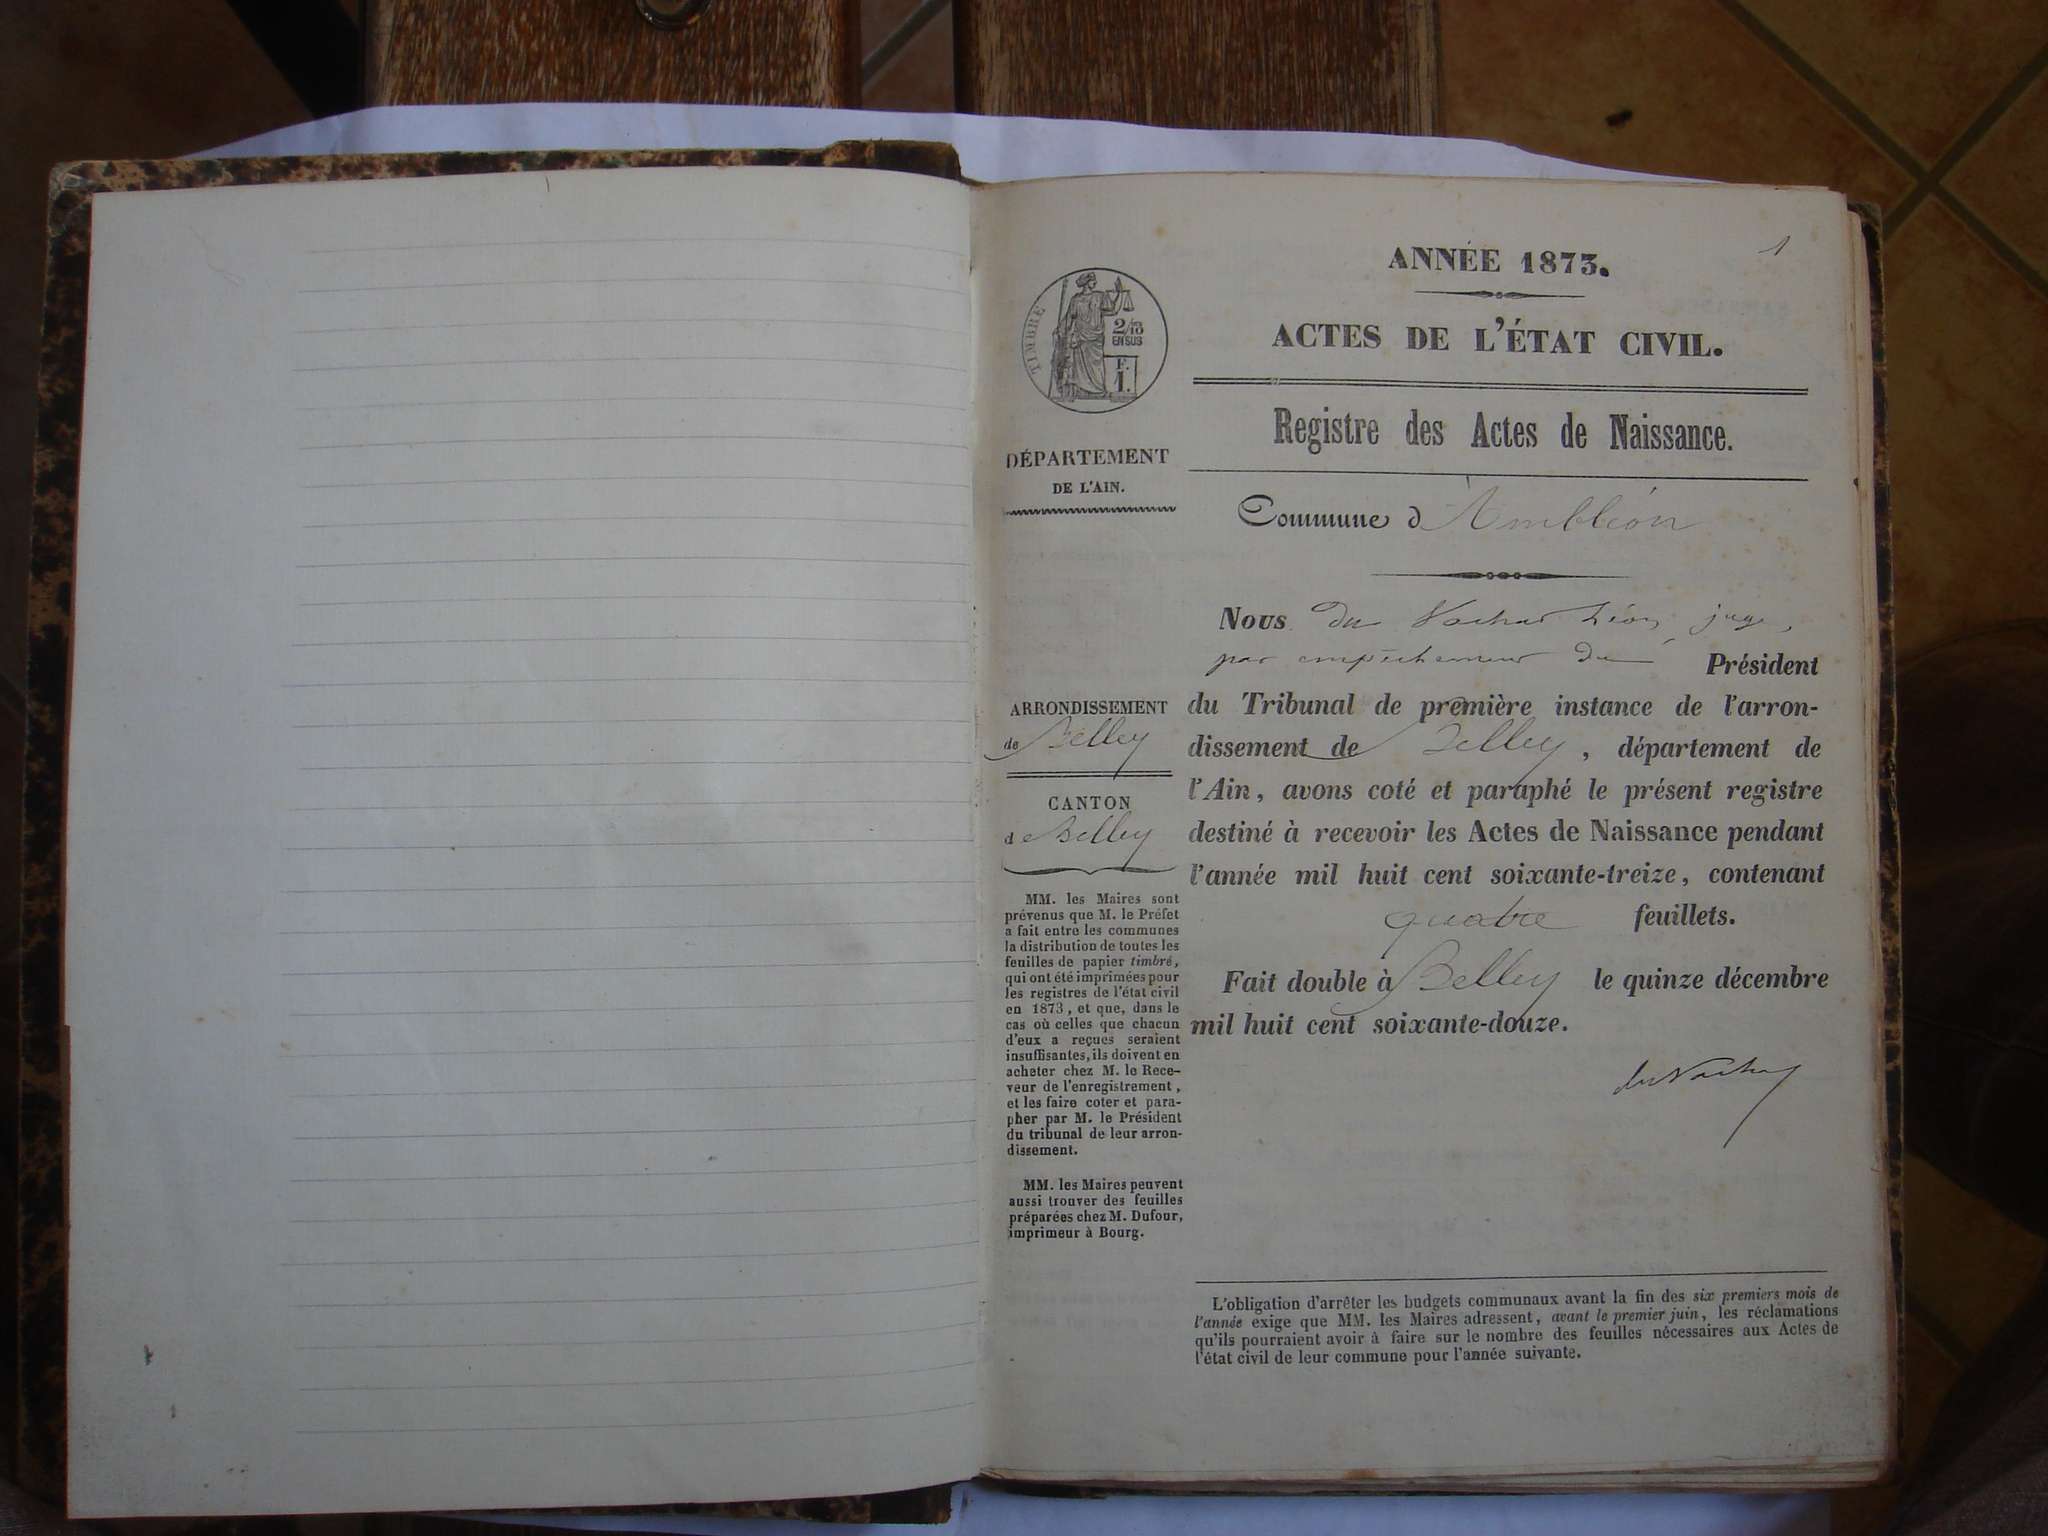 1
ANNÉE 1873.
ACTES DE L'ÉTAT CIVIL.
Registre des Actes de Naissance.
Commune d'Ambléon
TIMBRE
2/10
EN SUS
F.
1.
DÉPARTEMENT
DE L'AIN.
ARRONDISSEMENT
de Belley
CANTON
de Belley
MM. les Maires sont
prévenus que M. le Préfet
a fait entre les communes
la distribution de toutes les
feuilles de papier timbré,
qui ont été imprimées pour
les registres de l'état civil
en 1873, et que, dans le
cas où celles que chacun
d'eux a reçues seraient
insuffisantes, ils doivent en
acheter chez M. le Rece-
veur de l'enregistrement,
et les faire coter et para-
pher par M. le Président
du tribunal de leur arron-
dissement.
MM. les Maires peuvent
aussi trouver des feuilles
préparées chez M. Dufour,
imprimeur à Bourg.
Nous du Vachat Léon, juge,
par empêchement du Président
du Tribunal de première instance de l'arron-
dissement de Belley, département de
l'Ain, avons coté et paraphé le présent registre
destiné à recevoir les Actes de Naissance pendant
l'année mil huit cent soixante-treize, contenant
quatre feuillets.
Fait double à Belley le quinze décembre
mil huit cent soixante-douze.
du Vachat
L'obligation d'arrêter les budgets communaux avant la fin des six premiers mois de
l'année exige que MM. les Maires adressent, avant le premier juin, les réclamations
qu'ils pourraient avoir à faire sur le nombre des feuilles nécessaires aux Actes de
l'état civil de leur commune pour l'année suivante.